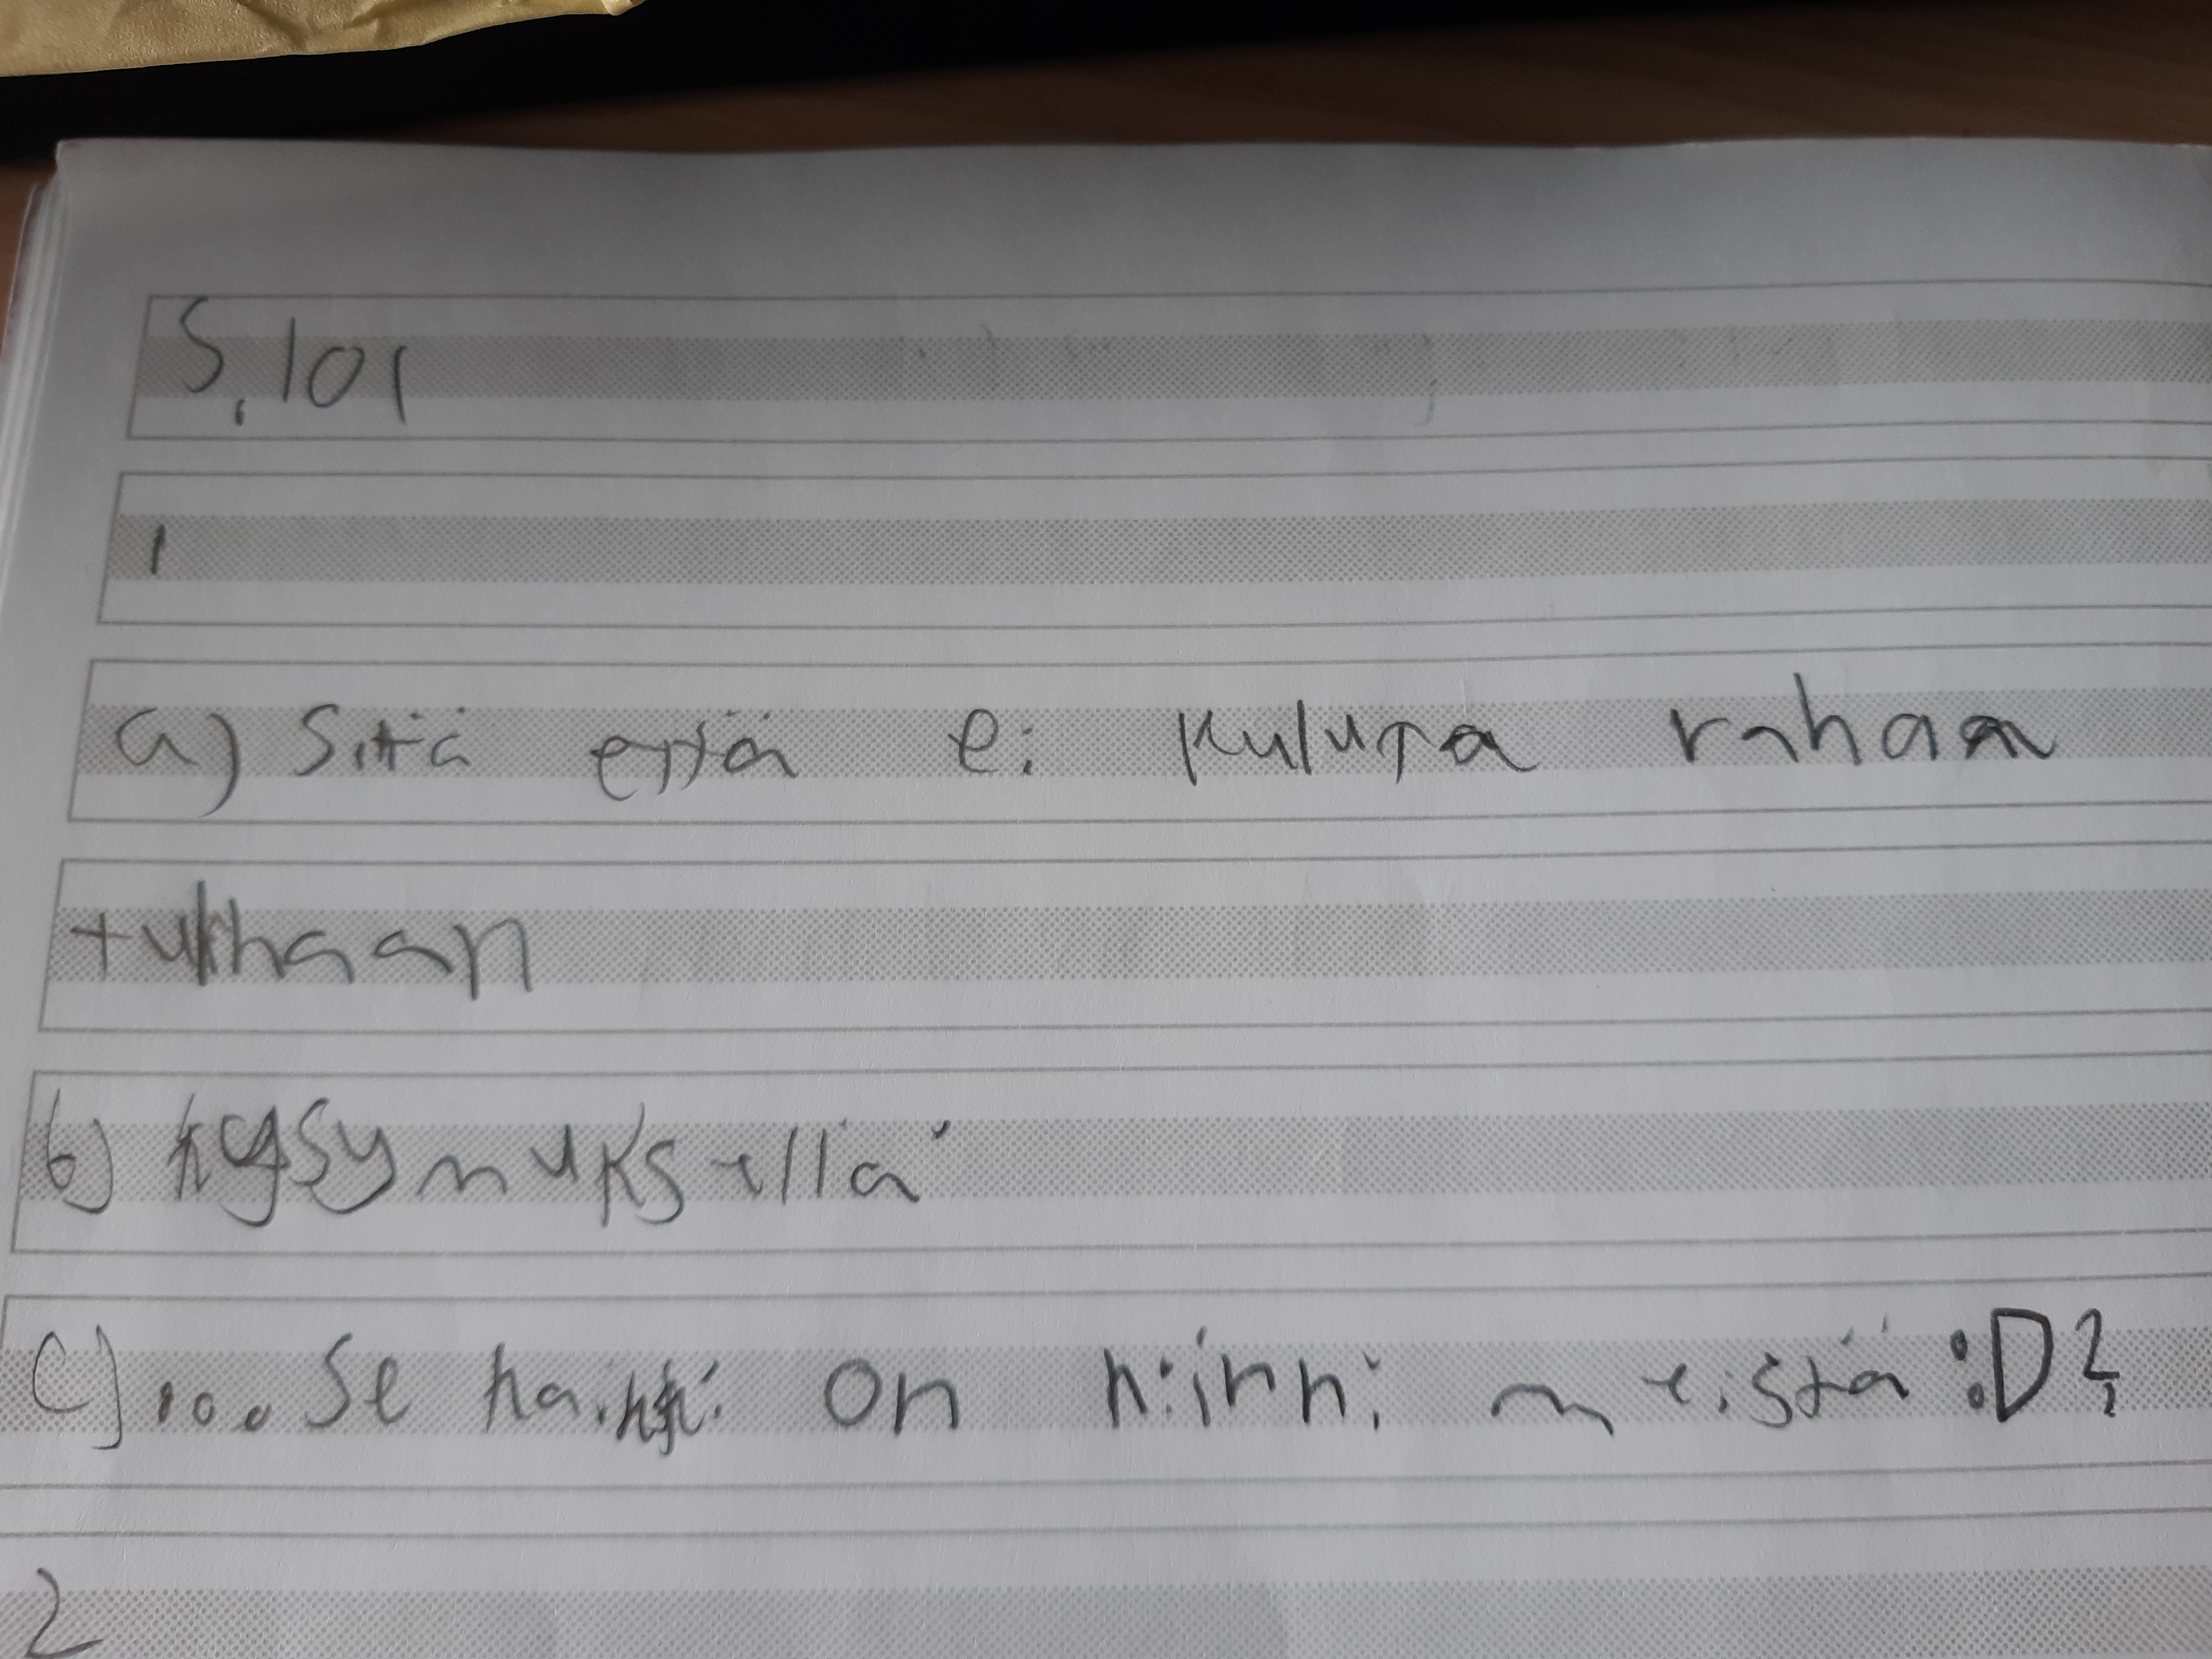 S. 101
1
a) Sitä että ei kuluta rahaa
turhaan
b) kysymyksellä
c) ... Se kaikki on kiinni meistä :D?
2